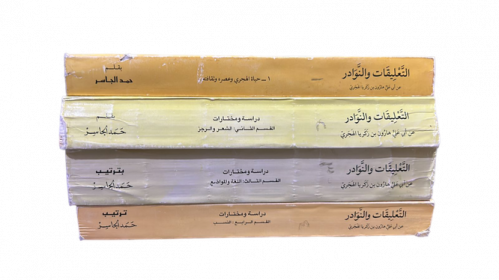 التَّعْلِيقَات والنَّوَادر
عن أبي عليّ هارون بن زكريا الهجري
١ـ حياة الهجري وعصره ونقاده
بقلم
حمد الجاسر
التَّعْلِيقَات والنَّوَادر
عن أبي عليّ هارون بن زكريا الهجري
دراسة ومختارات
القسم الثاني: الشعر والرجز
بقلم
حَمَد الجاسِرْ
التَّعْلِيقَات والنَّوَادر
عن أبي عليّ هارون بن زكريا الهجري
دراسة ومختارات
القسم الثالث: اللغة والمواضع
بترتيب
حَمَد الجاسِرْ
التَّعْلِيقَات والنَّوَادر
عن أبي عليّ هارون بن زكريا الهجري
دراسة ومختارات
القسم الرابع: النسب
ترتيب
حَمَد الجاسِرْ